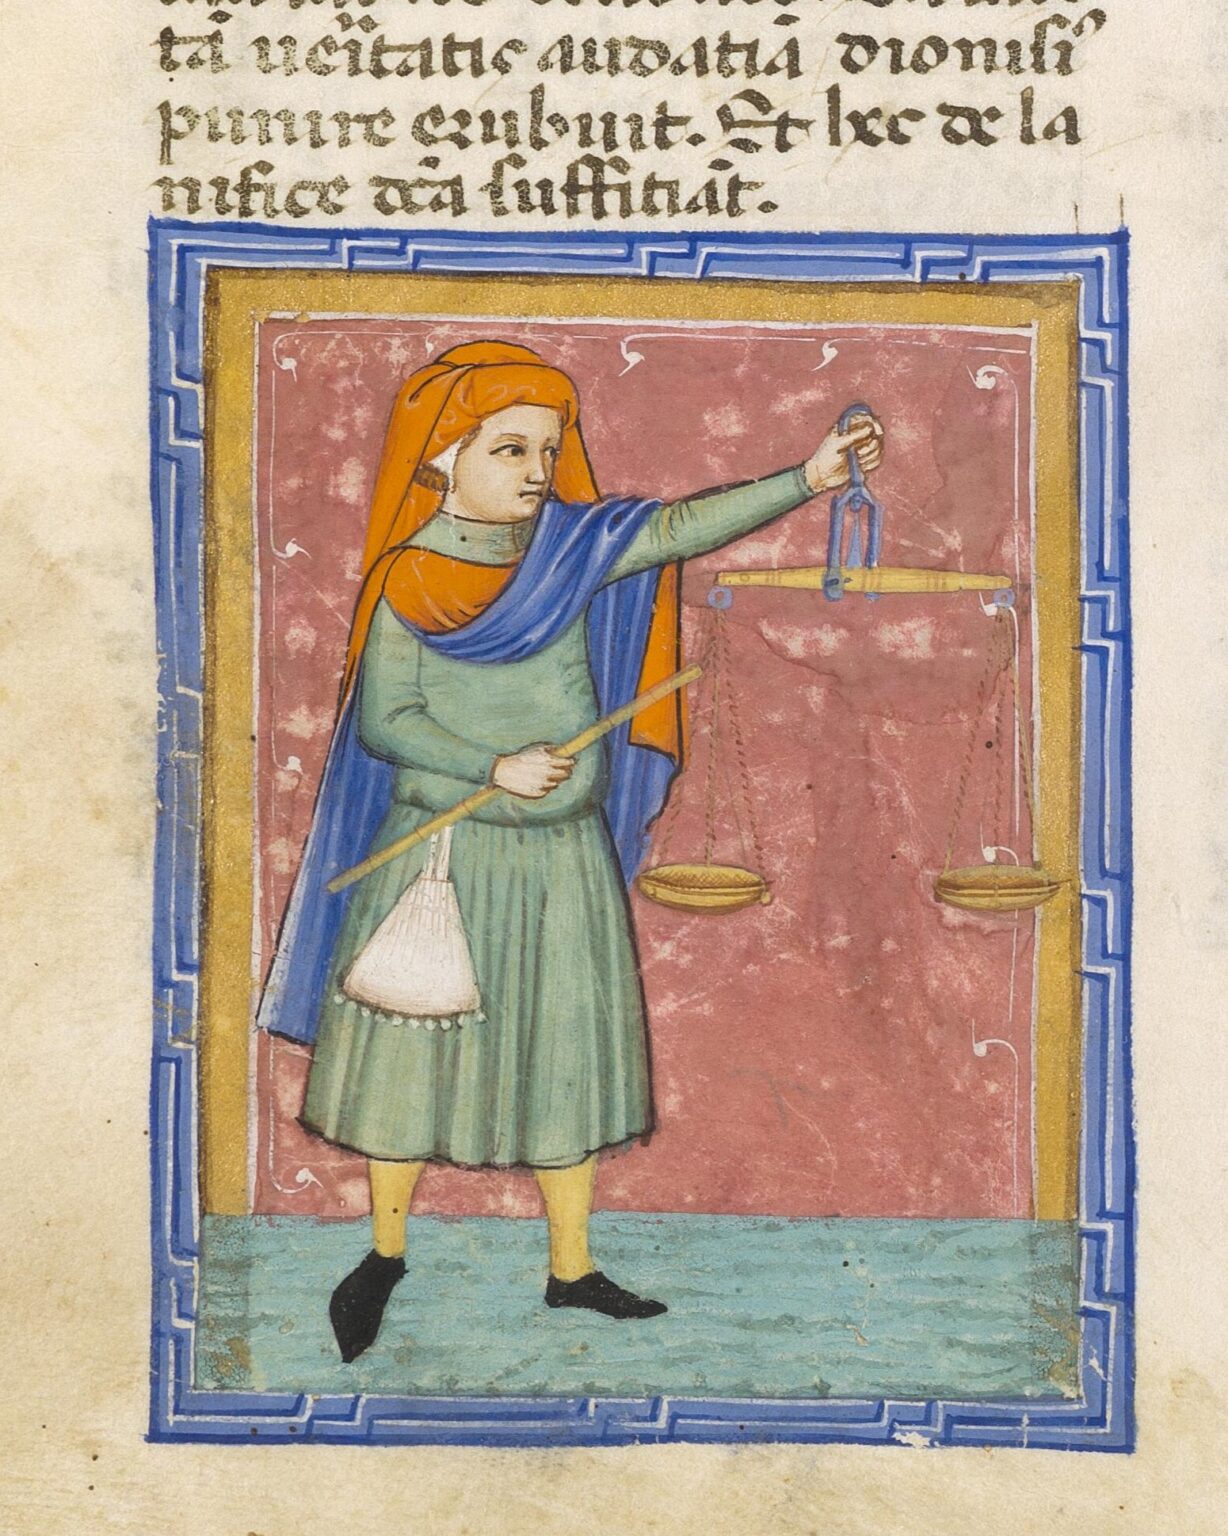 tā ueritatis audatiā dionisi
punire erubuit. Et hec de la
nifice dcā suffitiāt.